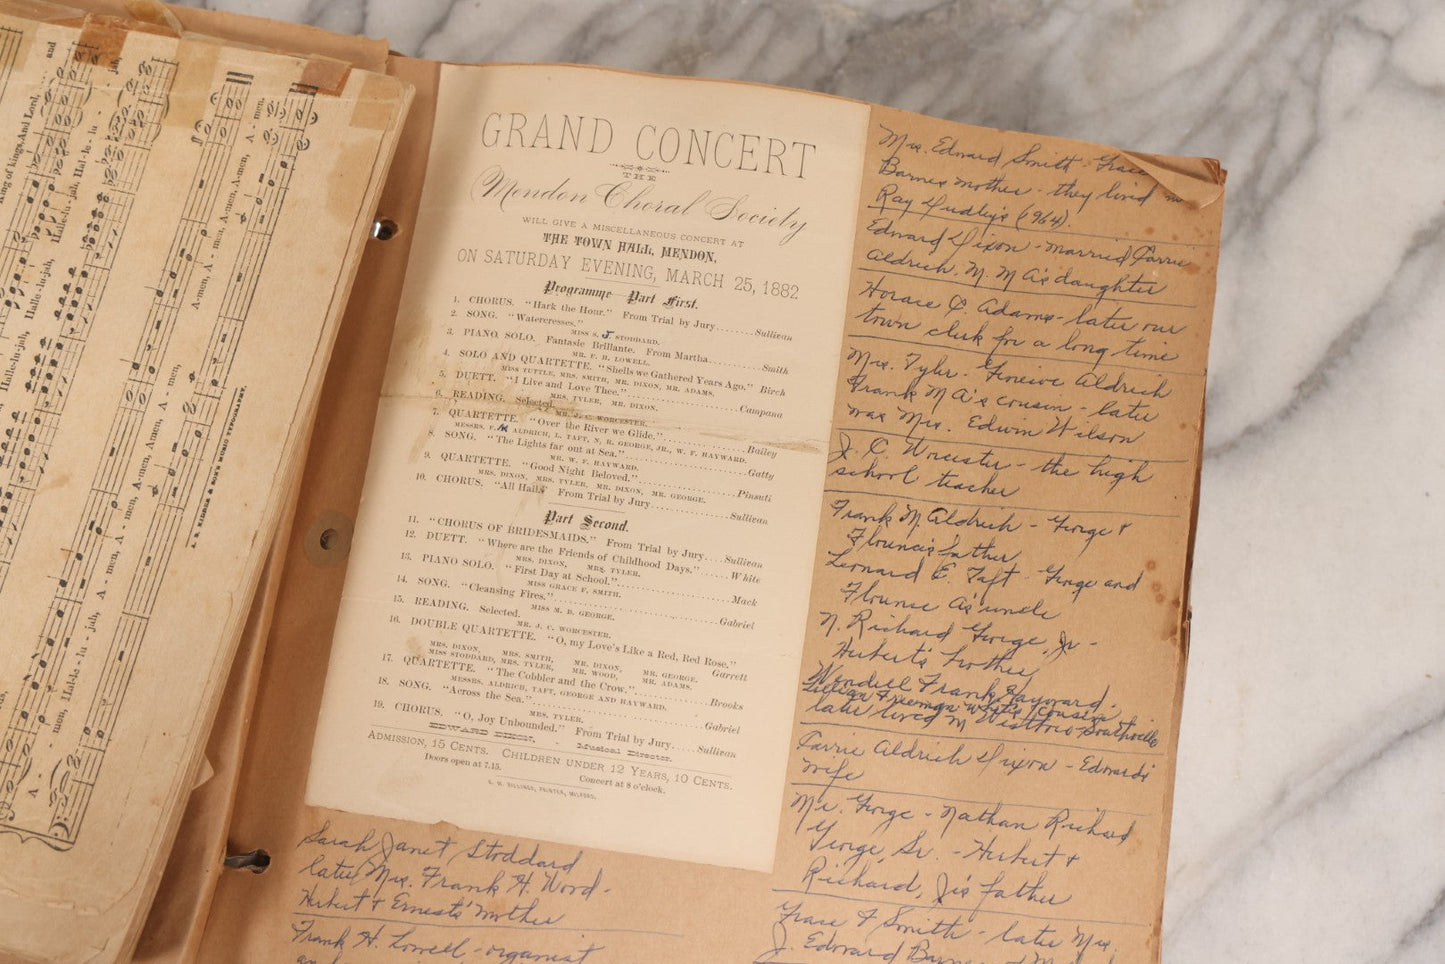 King of kings, And Lord, and
Halle-lu-jah, Hal-le-lu - jah,
A-men, A-men, A-men, A - men.
A - men, Hal-le-lu - jah, A-men, A-men, A-men, A - men.
A. B. KIDDER & SON'S MUSIC TYPOGRAPHY.
GRAND CONCERT
THE
Mendon Choral Society
WILL GIVE A MISCELLANEOUS CONCERT AT
THE TOWN HALL, MENDON,
ON SATURDAY EVENING, MARCH 25, 1882
Programme Part First.
1. CHORUS. "Hark the Hour." From Trial by Jury........Sullivan
2. SONG. "Watercresses."
MISS S. J. STODDARD.
3. PIANO SOLO. Fantasie Brillante. From Martha..........Smith
MR. F. H. LOWELL.
4. SOLO AND QUARTETTE. "Shells we Gathered Years Ago." Birch
MISS TUTTLE, MRS. SMITH, MR. DIXON, MR. ADAMS.
5. DUETT. "I Live and Love Thee."..........Campana
MRS. TYLER, MR. DIXON.
6. READING. Selected.
MR. J. C. WORCESTER.
7. QUARTETTE. "Over the River we Glide."..........Bailey
MESSRS. F. M ALDRICH, L. TAFT, N. R. GEORGE, JR., W. F. HAYWARD.
8. SONG. "The Lights far out at Sea."..........Gatty
MR. W. F. HAYWARD.
9. QUARTETTE. "Good Night Beloved."..........Pinsuti
MRS. DIXON, MRS. TYLER, MR. DIXON, MR. GEORGE.
10. CHORUS. "All Hail." From Trial by Jury..........Sullivan
Part Second.
11. "CHORUS OF BRIDESMAIDS." From Trial by Jury....Sullivan
12. DUETT. "Where are the Friends of Childhood Days."......White
MRS. DIXON, MRS. TYLER.
13. PIANO SOLO. "First Day at School."..........Mack
MISS GRACE F. SMITH.
14. SONG. "Cleansing Fires."..........Gabriel
MISS M. B. GEORGE.
15. READING. Selected.
MR. J. C. WORCESTER.
16. DOUBLE QUARTETTE. "O, my Love's Like a Red, Red Rose."
MRS. DIXON, MRS. SMITH, MR. DIXON, MR. GEORGE.
MISS STODDARD, MRS. TYLER, MR. WOOD, MR. ADAMS. Garrett
17. QUARTETTE. "The Cobbler and the Crow."..........Brooks
MESSRS. ALDRICH, TAFT, GEORGE AND HAYWARD.
18. SONG. "Across the Sea."..........Gabriel
MRS. TYLER.
19. CHORUS. "O, Joy Unbounded." From Trial by Jury.....Sullivan
EDWARD DIXON, - Musical Director.
ADMISSION, 15 CENTS. CHILDREN UNDER 12 YEARS, 10 CENTS.
Doors open at 7.15. Concert at 8 o'clock.
G. W. BILLINGS, PRINTER, MILFORD.
Mrs. Edward Smith - Grace
Barnes mother - they lived in
Ray Dudley's (1964).
Edward Dixon - married Carrie
Aldrich. M. M A's daughter
Horace C. Adams - later our
town clerk for a long time
Mrs. Tyler - Geneive Aldrich
Frank M A's cousin - later
was Mrs. Edwin Wilson
J. C. Worcester - the high
school teacher
Frank M. Aldrich - George &
Florence's father
Leonard E. Taft - George and
Florence A's uncle
N. Richard George, Jr -
Herbert's brother
Wendell Frank Hayward.
Lillian Freeman White's cousin
later lived in Southville
Carrie Aldrich Dixon - Edward's
wife
Mr. George - Nathan Richard
George Sr. - Herbert &
Richard, Jr's father
Grace F Smith - later Mrs.
J. Edward Barnes
Sarah Janet Stoddard
later Mrs. Frank H. Wood -
Herbert & Ernest's mother
Frank H. Lowell - organist